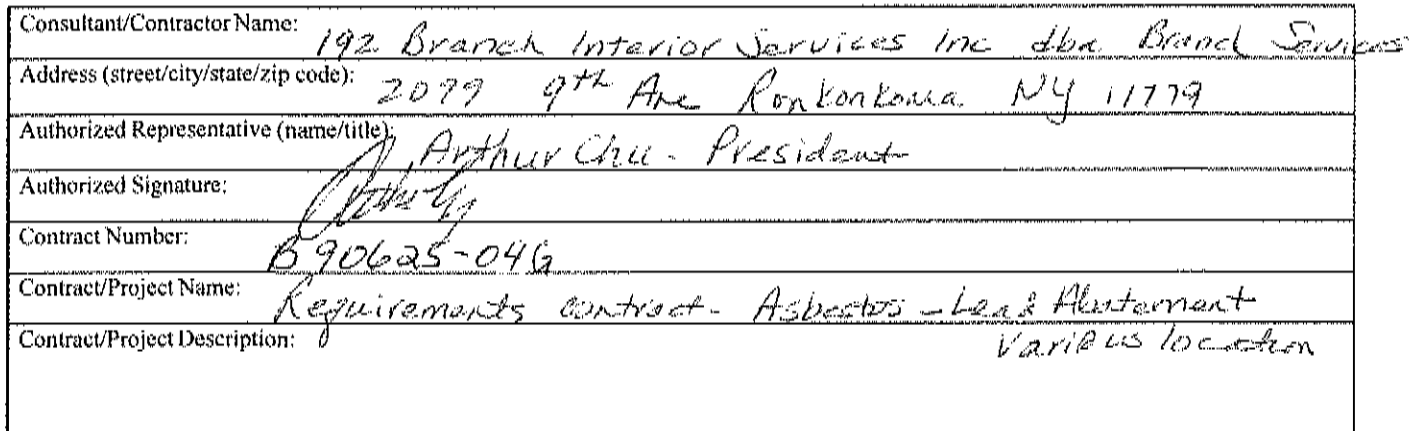 Consultant/Contractor Name: 192 Branch Interior Services Inc dba Branch Services
Address (street/city/state/zip code): 2099 9th Ave Ronkonkoma NY 11779
Authorized Representative (name/title): Arthur Chu - President
Authorized Signature:
Contract Number: B90625-04G
Contract/Project Name: Requirements contract - Asbestos - Lead Abatement
Contract/Project Description: Various location